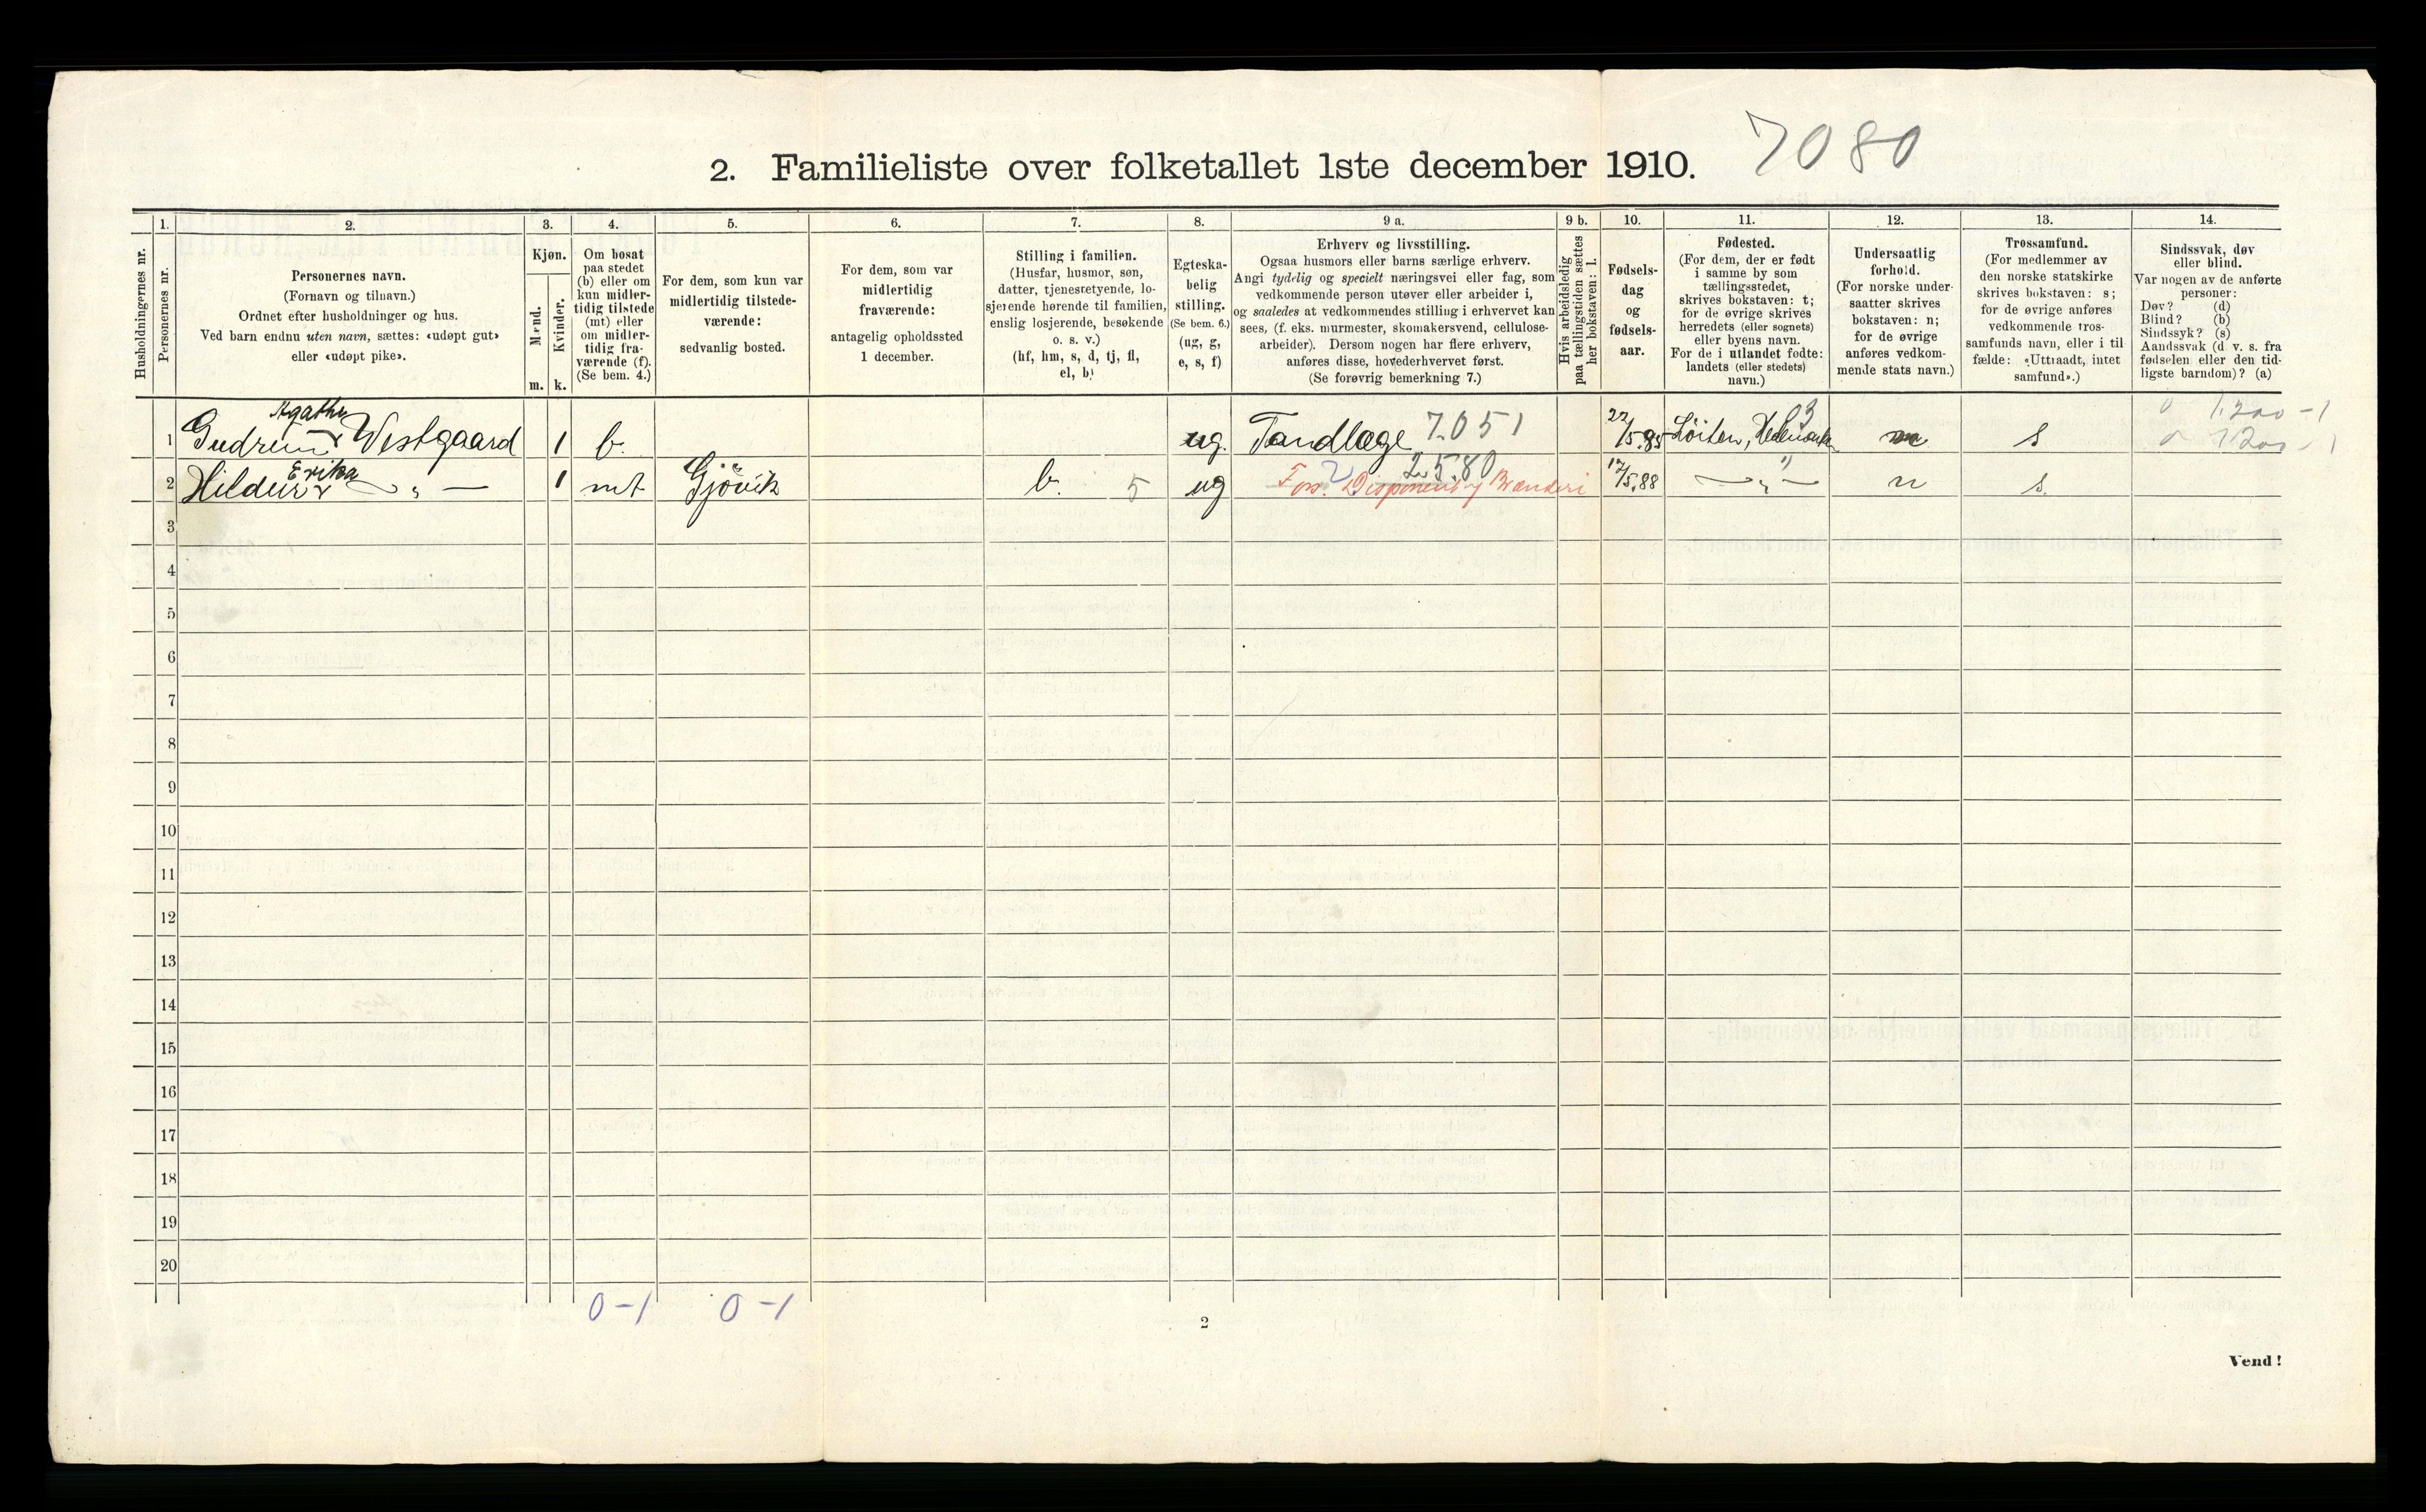 7080
2. Familieliste over folketallet 1ste december 1910.
Husholdningernes nr.
1.
Personernes nr.
2.
Personernes navn.
(Fornavn og tilnavn.)
Ordnet efter husholdninger og hus.
Ved barn endnu uten navn, sættes: «udøpt gut»
eller «udøpt pike».
3.
Kjøn.
Mænd.
Kvinder.
m. k.
4.
Om bosat
paa stedet
(b) eller om
kun midler-
tidig tilstede
(mt) eller
om midler-
tidig fra-
værende (f).
(Se bem. 4.)
5.
For dem, som kun var
midlertidig tilstede-
værende:
sedvanlig bosted.
6.
For dem, som var
midlertidig
fraværende:
antagelig opholdssted
1 december.
7.
Stilling i familien.
(Husfar, husmor, søn,
datter, tjenestetyende, lo-
sjerende hørende til familien,
enslig losjerende, besøkende
o. s. v.)
(hf, hm, s, d, tj, fl,
el, b)
8.
Egteska-
belig
stilling.
(Se bem. 6.)
(ug, g,
e, s, f)
9 a.
Erhverv og livsstilling.
Ogsaa husmors eller barns særlige erhverv.
Angi tydelig og specielt næringsvei eller fag, som
vedkommende person utøver eller arbeider i,
og saaledes at vedkommendes stilling i erhvervet kan
sees, (f. eks. murmester, skomakersvend, cellulose-
arbeider). Dersom nogen har flere erhverv,
anføres disse, hovederhvervet først.
(Se forøvrig bemerkning 7.)
9 b.
Hvis arbeidsledig
paa tællingstiden sættes
her bokstaven: l.
10.
Fødsels-
dag
og
fødsels-
aar.
11.
Fødested.
(For dem, der er født
i samme by som
tællingsstedet,
skrives bokstaven: t;
for de øvrige skrives
herredets (eller sognets)
eller byens navn.
For de i utlandet fødte:
landets (eller stedets)
navn.)
12.
Undersaatlig
forhold.
(For norske under-
saatter skrives
bokstaven: n;
for de øvrige
anføres vedkom-
mende stats navn.)
13.
Trossamfund.
(For medlemmer av
den norske statskirke
skrives bokstaven: s;
for de øvrige anføres
vedkommende tros-
samfunds navn, eller i til-
fælde: «Uttraadt, intet
samfund».)
14.
Sindssvak, døv
eller blind.
Var nogen av de anførte
personer:
Døv? (d)
Blind? (b)
Sindssyk? (s)
Aandssvak (d. v. s. fra
fødselen eller den tid-
ligste barndom)? (a)
Agathe
1 Gudrun Westgaard 1 b. ug. Tandlæge 7.051 22/5.85 Løiten, Hedemarken 03 n s 0 1.200-1
0 1200-1
Erika
2 Hildur — „ — 1 mt Gjøvik b. 5 ug 2.5.80 Fors. Disponent Brænderi 17/5.88 — „ — n s.
3
4
5
6
7
8
9
10
11
12
13
14
15
16
17
18
19
20
0-1 0-1
2
Vend!